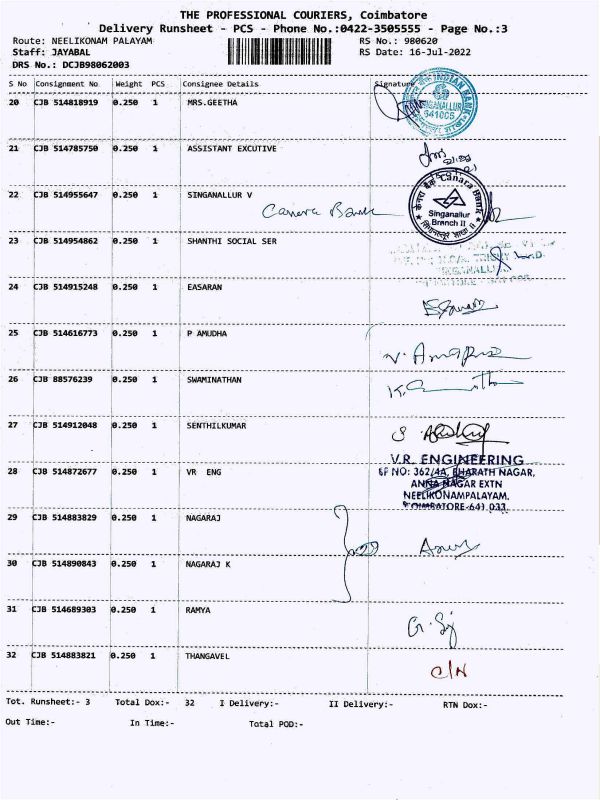 THE PROFESSIONAL COURIERS, Coimbatore
Delivery Runsheet - PCS - Phone No.:0422-3505555 - Page No.:3
Route: NEELIKONAM PALAYAM RS No.: 980620
Staff: JAYABAL RS Date: 16-Jul-2022
DRS No.: DCJB98062003
S No Consignment No Weight PCS Consignee Details Signature
20 CJB 514818919 0.250 1 MRS.GEETHA
INDIAN BANK
SINGANALLUR
641005
21 CJB 514785750 0.250 1 ASSISTANT EXCUTIVE
22 CJB 514955647 0.250 1 SINGANALLUR V
Canera Bank
केनरा बैंक Canara Bank
Singanallur
Branch II
23 CJB 514954862 0.250 1 SHANTHI SOCIAL SER
24 CJB 514915248 0.250 1 EASARAN
25 CJB 514616773 0.250 1 P AMUDHA
26 CJB 88576239 0.250 1 SWAMINATHAN
27 CJB 514912048 0.250 1 SENTHILKUMAR
28 CJB 514872677 0.250 1 VR ENG
V.R. ENGINEERING
SF NO: 362/4A, BHARATH NAGAR,
ANNA NAGAR EXTN
NEELIKONAMPALAYAM,
COIMBATORE-641 033.
29 CJB 514883829 0.250 1 NAGARAJ
30 CJB 514890843 0.250 1 NAGARAJ K
31 CJB 514689303 0.250 1 RAMYA
32 CJB 514883821 0.250 1 THANGAVEL
C/N
Tot. Runsheet:- 3 Total Dox:- 32 I Delivery:- II Delivery:- RTN Dox:-
Out Time:- In Time:- Total POD:-